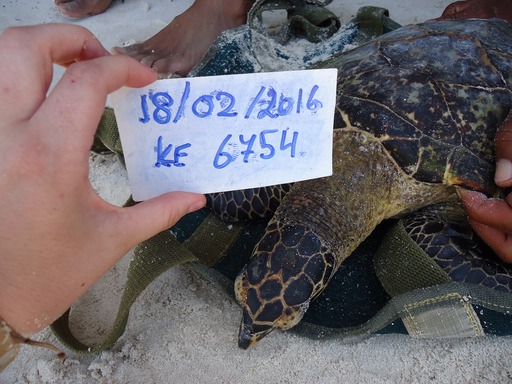 18/02/2016
KE 6754